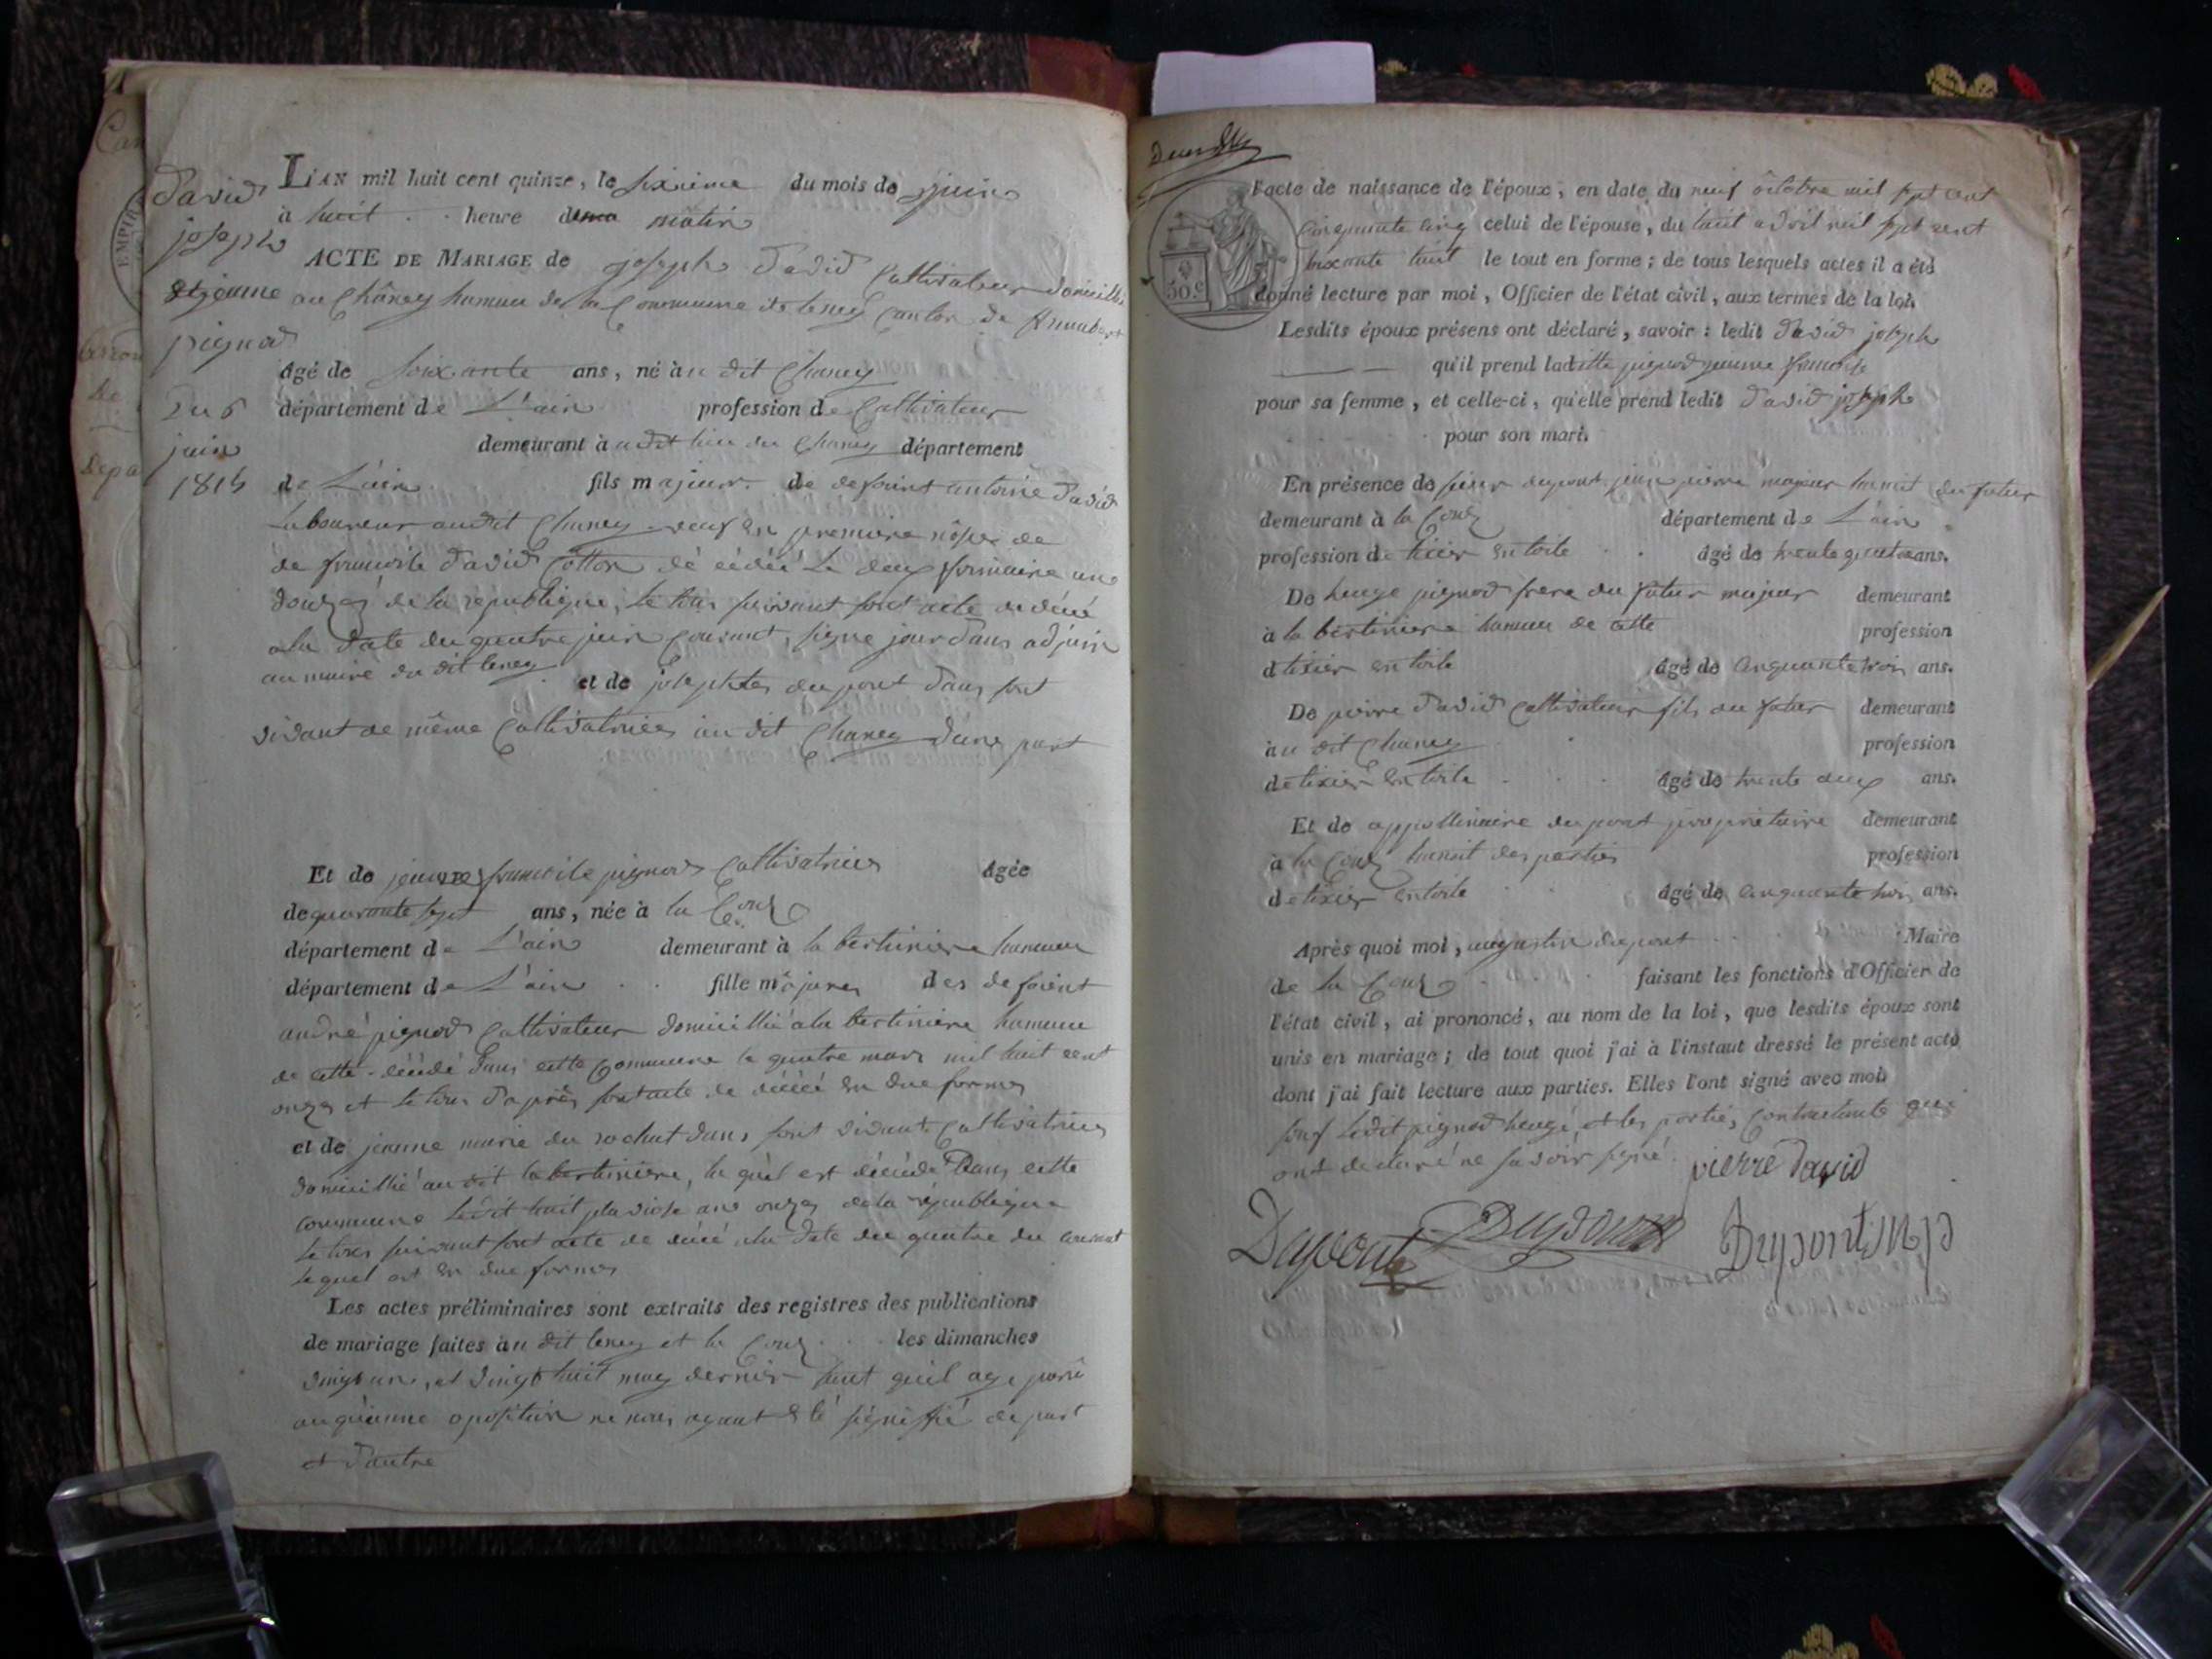 David
joseph
et jeanne
pignod
du 6
juin
1815
L'AN mil huit cent quinze, le sixième du mois de juin
à huit heure du matin
ACTE DE MARIAGE de joseph David Cultivateur domicillié
au Chaney hameau de la Commune de leney Canton de
âgé de soixante ans, né àu dit Chaney
département de L'ain profession de Cultivateur
demeurant àudit lieu du Chaney département
de L'ain fils majeur de defunt antoine David
laboureur audit Chaney veuf en premiere nôsse de
de françoise David Cotton dé cédéé le deux frimaire ane
douzes de la republique, le tous suivant sont acte de décé
a la date du quatre juin Courant, signe jourdans adjoin
au maire du dit leney et de josephtes dupont dans sont
vivant de même Cultivatrices au dit Chaney d'une part
Et de jeanne francoise pignod Cultivatrices âgée
de quarante sept ans, née à la Coux
département de L'ain demeurant à la bertiniere hameau
département de L'ain fille majeures des defunt
andré pignod Cultivateur domicillié a la bertiniere hameau
de cette décédé dans cette Commune le quatre mars mil huit cent
onzes et le tous d'après sont acte de décéé en due formes
et de jeanne marie du rochat dans sont vivant Cultivatrices
domicillié au dit la bertiniere, la quel est décédé Dans cette
commune ledit huit pluviose ane onzes de la république
le tous suivant sont acte de décé a la date du quatre du courant
le quel est en due formes
Les actes préliminaires sont extraits des registres des publications
de mariage faites àu dit leney et la Coux les dimanches
vingt un, et vingt huit may dernier sant quil aye parü
auquenne oposition ne nous ayant été signiffié de part
et d'autre
50.c
l'acte de naissance de l'époux, en date du neuf octobre mil sept cent
cinquante cinq celui de l'épouse, du huit avril mil sept cent
soixante huit le tout en forme; de tous lesquels actes il a été
donné lecture par moi, Officier de l'état civil, aux termes de la loi.
Lesdits époux présens ont déclaré, savoir: ledit David joseph
qu'il prend ladite pignod jeanne francoise
pour sa femme, et celle-ci, qu'elle prend ledit David joseph
pour son mari.
En présence de sieur dupont jean pierre majeur du futur
demeurant à la Coux département de L'ain
profession de tixier en toile âgé de trente quatre ans.
De hugue pignod frere du futur majeur demeurant
à la bertiniere hameau de cette profession
de tixier en toile âgé de cinquante trois ans.
De pierre David Cultivateur fils du futur demeurant
àu dit Chaney profession
de tixier en toile âgé de trente deux ans.
Et de appollinaire dupont propriétaire demeurant
à la Coux des parties profession
de tixier en toile âgé de cinquante trois ans.
Après quoi moi, augustin dupont Maire
de la Coux faisant les fonctions d'Officier de
l'état civil, ai prononcé, au nom de la loi, que lesdits époux sont
unis en mariage; de tout quoi j'ai à l'instant dressé le présent acte
dont j'ai fait lecture aux parties. Elles l'ont signé avec moi
sauf ledit pignod et les parties contractante qui
ont declaré ne savoir signé. pierre david
Dupont Dupont Dupont